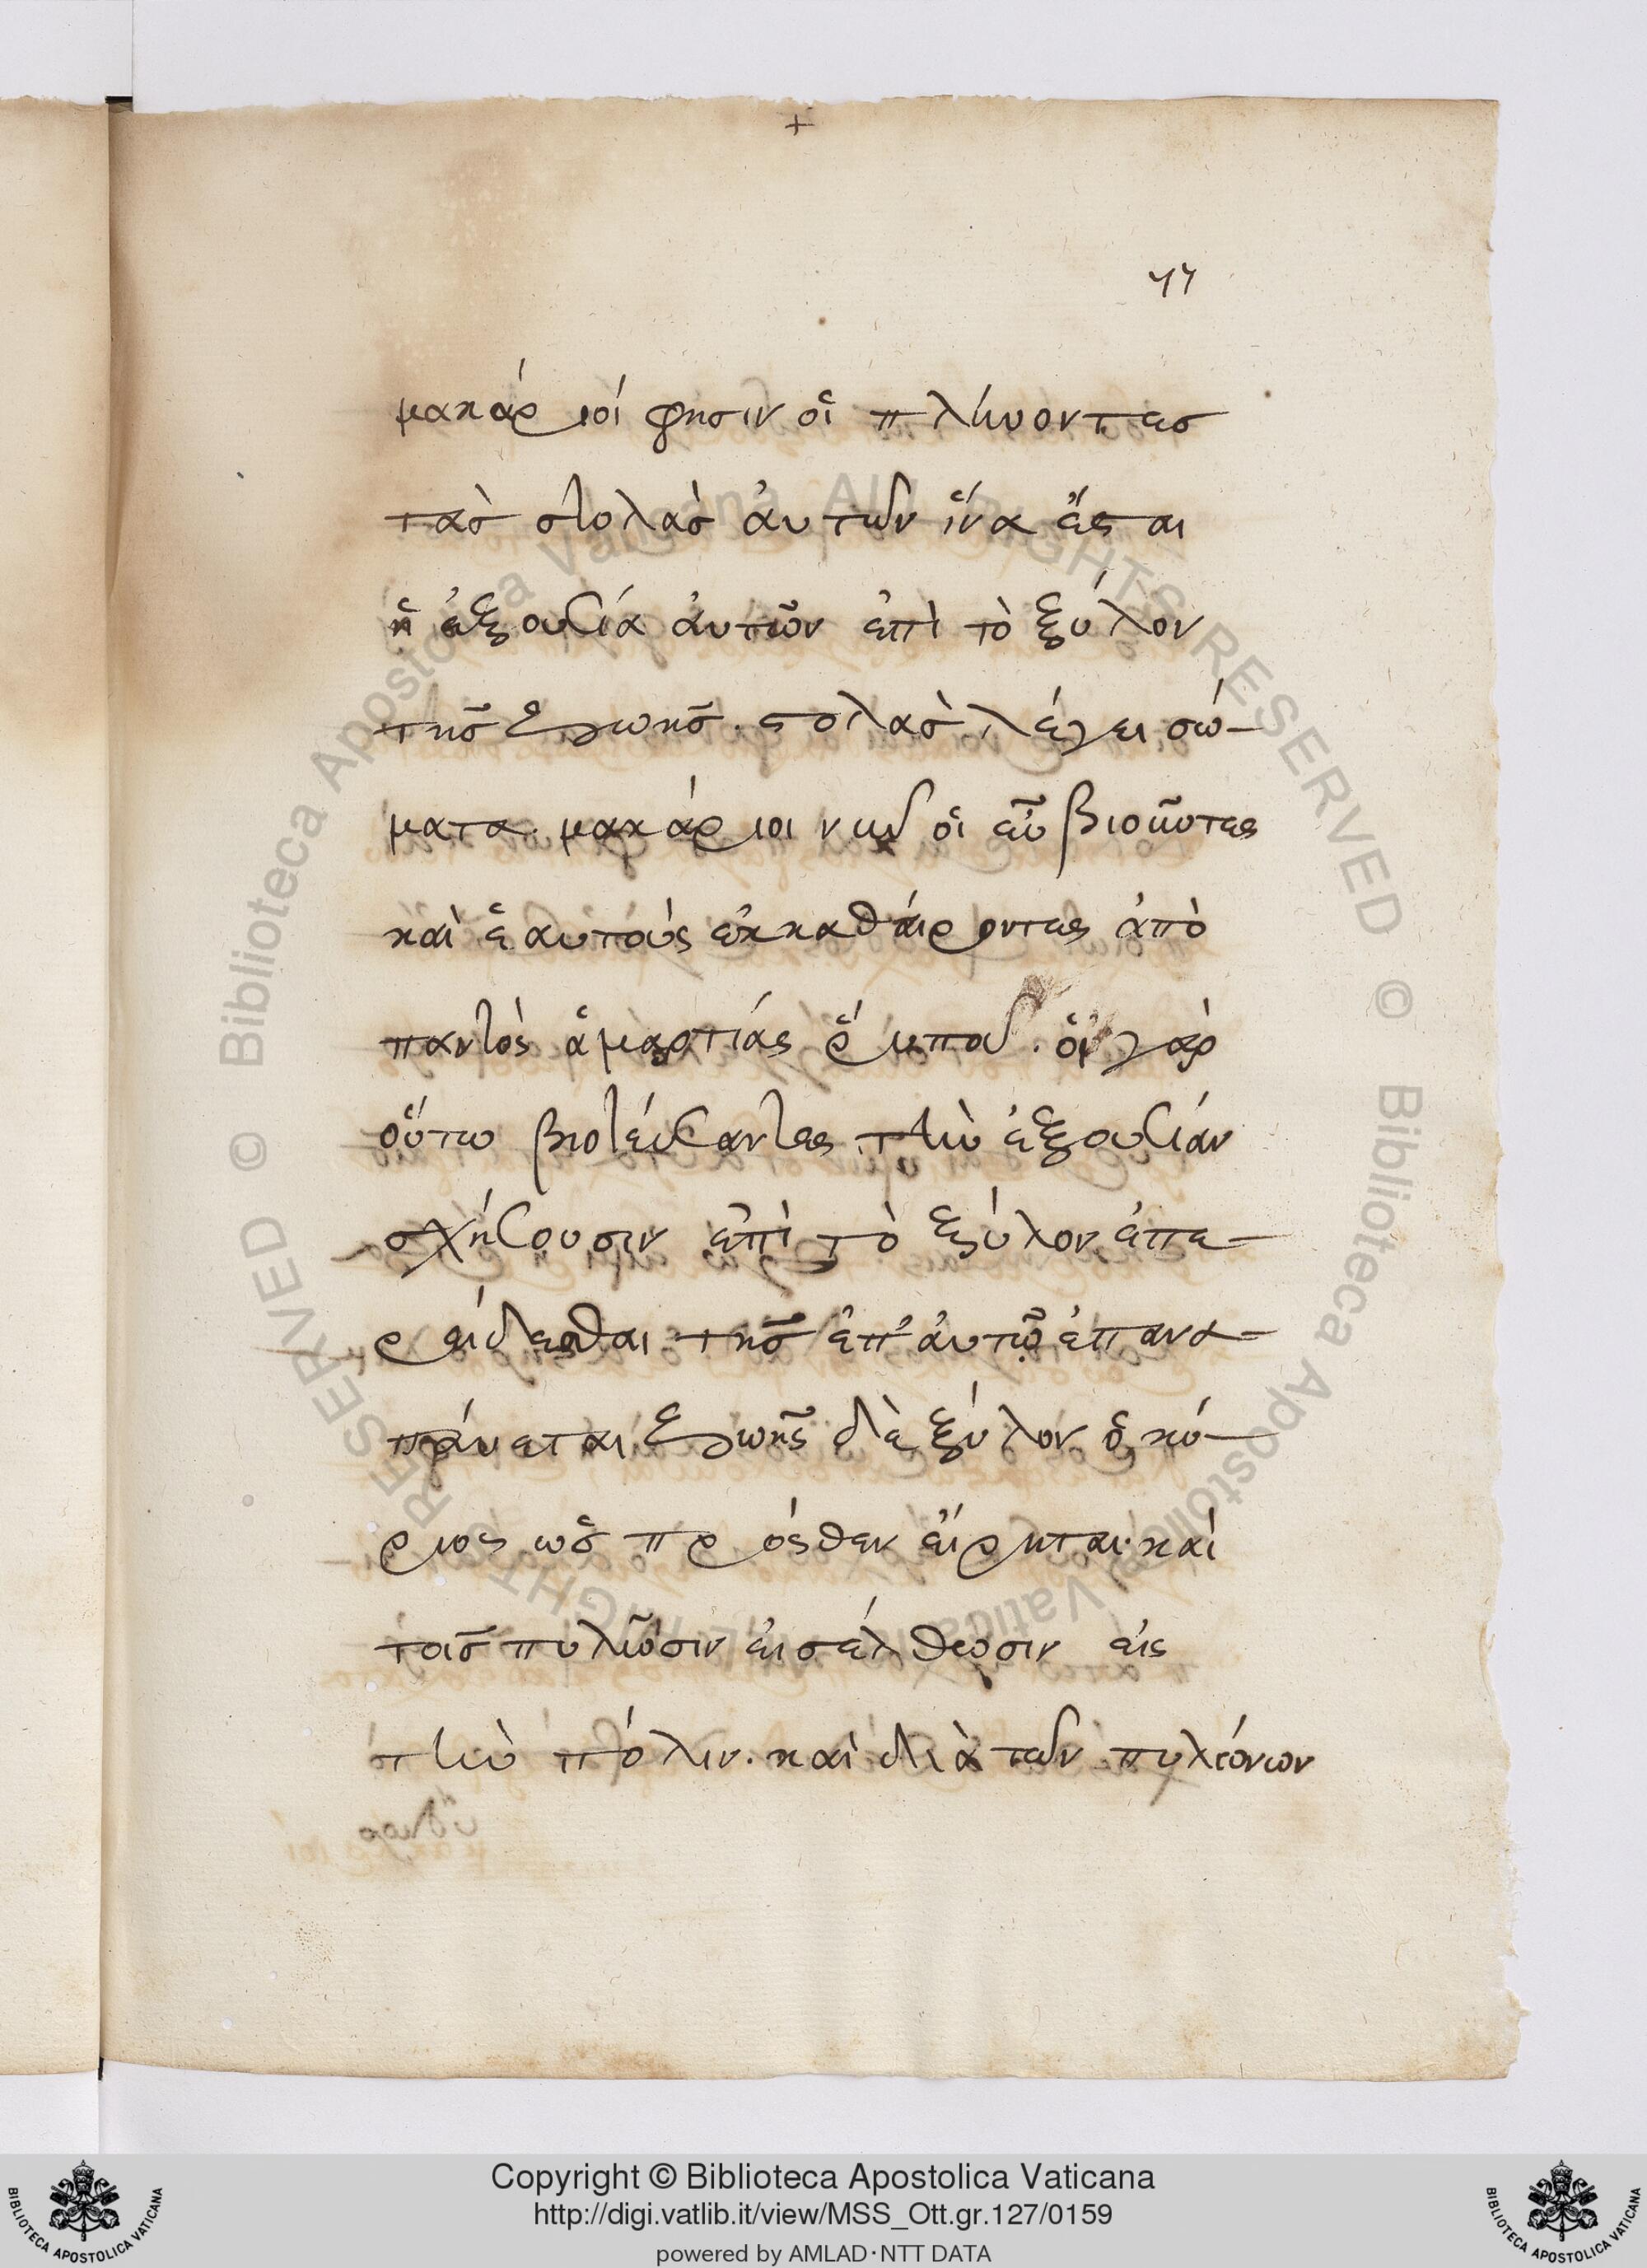 +
77
μακάριοί φησιν οἱ πλήνοντεσ
τὰσ στολὰσ ἀυτῶν ἵνα ἔσται
ἡ ἐξουσία ἀυτῶν ἐπὶ τὸ ξύλον
τῆσ ζωῆσ. στολὰσ λέγει σώ-
ματα. μακάριοι νῦν οἱ εὖ βιοῦντες
καὶ ἑαυτοὺς ἐκκαθάιροντες ἀπὸ
παντὸς ἁμαρτίας ῥύπου. οἱ γὰρ
οὕτω βιοτεύσαντες τὴν ἐξουσίαν
σχήσουσιν ἐπὶ τὸ ξύλον ἐπε-
ρείδεσθαι τῆσ ἐπ' ἀυτῷ ἐπανα-
πάυεται ζωῆς δὲ ξύλον ὁ κύ-
ριος ὡσ πρόσθεν εἴρηται. καὶ
τοῖσ πυλῶσιν εἰσέλθωσιν εἰς
τὴν πόλιν. καὶ διὰ τῶν πυλώνων
© Biblioteca Apostolica Vaticana ALL RIGHTS RESERVED © Biblioteca Apostolica Vaticana ALL RIGHTS RESERVED
BIBLIOTECA APOSTOLICA VATICANA
Copyright © Biblioteca Apostolica Vaticana
http://digi.vatlib.it/view/MSS_Ott.gr.127/0159
powered by AMLAD·NTT DATA
BIBLIOTECA APOSTOLICA VATICANA